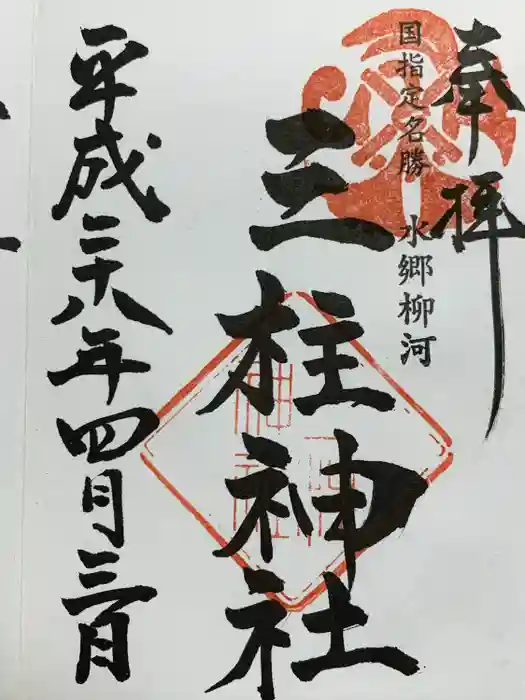 奉拝
国指定名勝 水郷柳河
三柱神社
平成二十八年四月三日